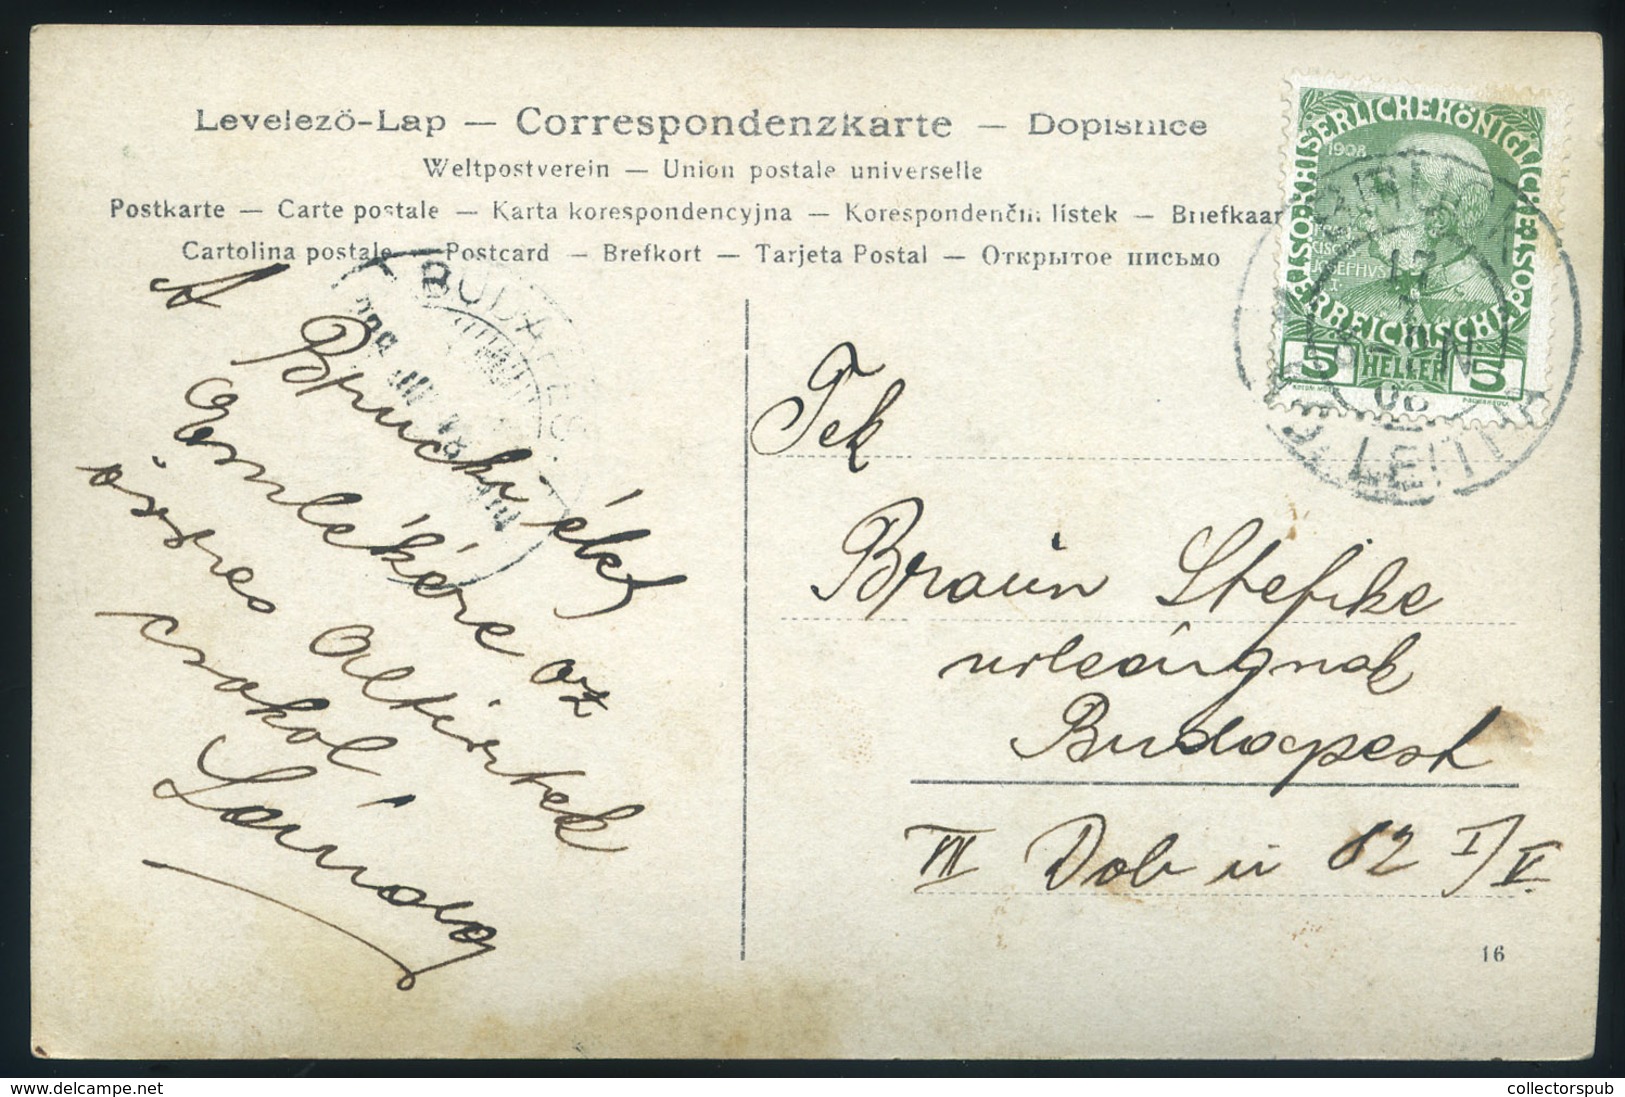 Levelező-Lap — Correspondenzkarte — Dopisnice
Weltpostverein — Union postale universelle
Postkarte — Carte postale — Karta korespondencyjna — Korespondenční lístek — Briefkaar
Cartolina postale — Postcard — Brefkort — Tarjeta Postal — Открытое письмо
KAISERLICHEKÖNIGLICHE ÖSTERREICHISCHE POST
1908
5 HELLER 5
17
08
LEIT
BUDAPEST
A Brucki élet
Emlékére az
összes altisztek
csokol
Sándor
Tek
Braun Stefike
urleánynak
Budapest
VII Dob u 82 I/V.
16
collectorspub